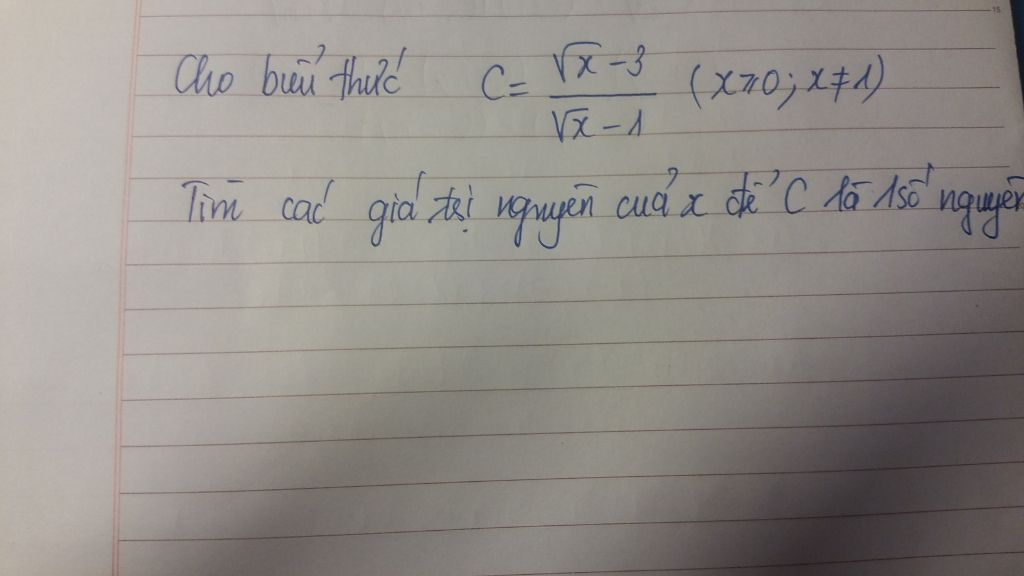 Cho biểu thức C = \frac{\sqrt{x} - 3}{\sqrt{x} - 1} (x ≥ 0; x ≠ 1)
Tìm các giá trị nguyên của x để C là 1 số nguyên